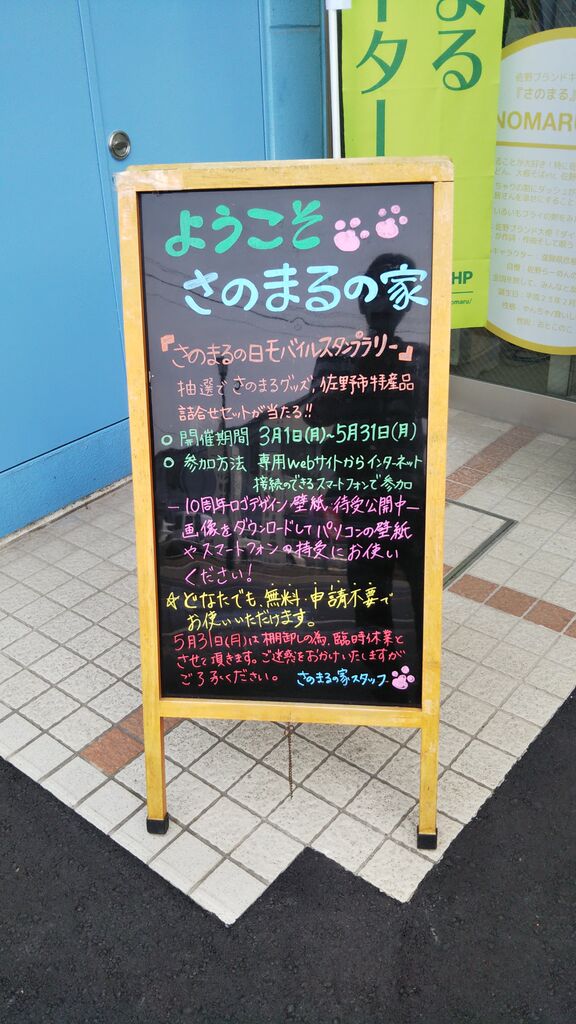 ようこそ
さのまるの家
『さのまるの日モバイルスタンプラリー』
抽選で さのまるグッズ, 佐野市特産品
詰合せセットが当たる!!
○ 開催期間 3月1日(月)~5月31日(月)
○ 参加方法 専用webサイトからインターネット
接続のできるスマートフォンで参加
—10周年ロゴデザイン壁紙・待受公開中—
画像をダウンロードして パソコンの壁紙
やスマートフォンの待受にお使い
ください!
☆どなたでも、無料・申請不要で
お使いいただけます。
5月31日(月)は棚卸しの為、臨時休業と
させて頂きます。ご迷惑をおかけいたしますが
ご了承ください。
さのまるの家スタッフ
まる
ター
佐野ブランドキ
『さのまる』
NOMARU
HP
nomaru/